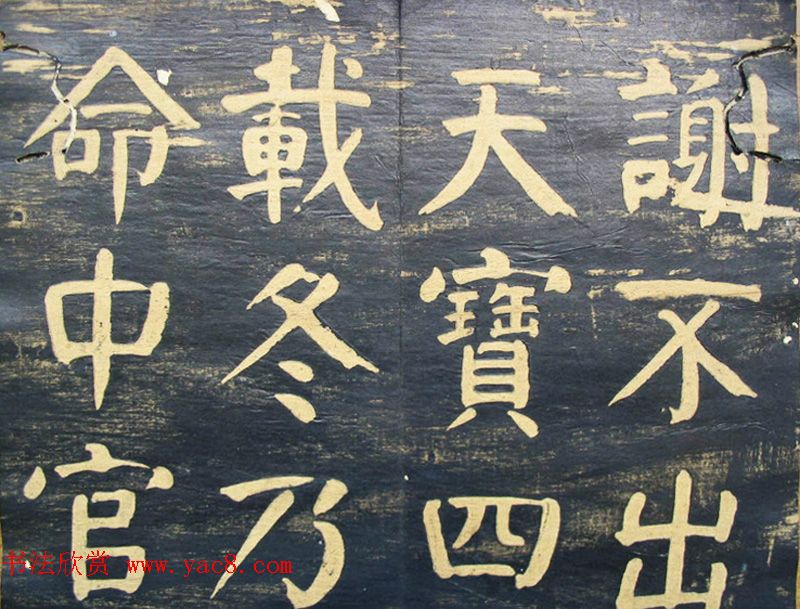 謝不出
天寶四
載冬乃
命中官
书法欣赏 www.yac8.com